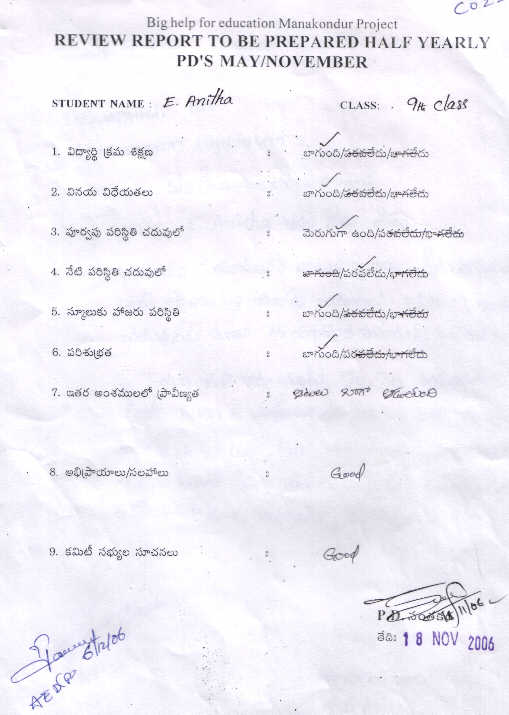 Big help for education Manakondur Project
REVIEW REPORT TO BE PREPARED HALF YEARLY
PD'S MAY/NOVEMBER
STUDENT NAME : E. Anitha CLASS: . 9th class
1. విద్యార్థి క్రమ శిక్షణ : బాగుంది/పరవలేదు/బాగలేదు
2. వినయ విధేయతలు : బాగుంది/పరవలేదు/బాగలేదు
3. పూర్వపు పరిస్థితి చదువులో : మెరుగుగా ఉంది/పరవలేదు/బాగలేదు
4. నేటి పరిస్థితి చదువులో : బాగుంది/పరవలేదు/బాగలేదు
5. స్కూలుకు హాజరు పరిస్థితి : బాగుంది/పరవలేదు/బాగలేదు
6. పరిశుభ్రత : బాగుంది/పరవలేదు/బాగలేదు
7. ఇతర అంశములలో ప్రావీణ్యత : ఆటలు బాగా ఆడుతుంది
8. అభిప్రాయాలు/సలహాలు : Good
9. కమిటీ సభ్యుల సూచనలు : Good
P.D. సంతకం
తేది: 18 NOV 2006
6/12/06